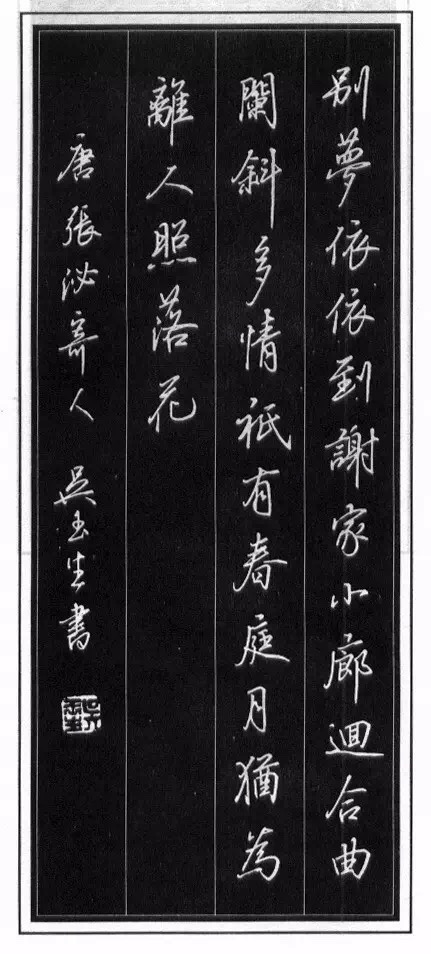 別夢依依到謝家小廊迴合曲
闌斜多情祗有春庭月猶為
離人照落花
唐張泌寄人 吳玉生書